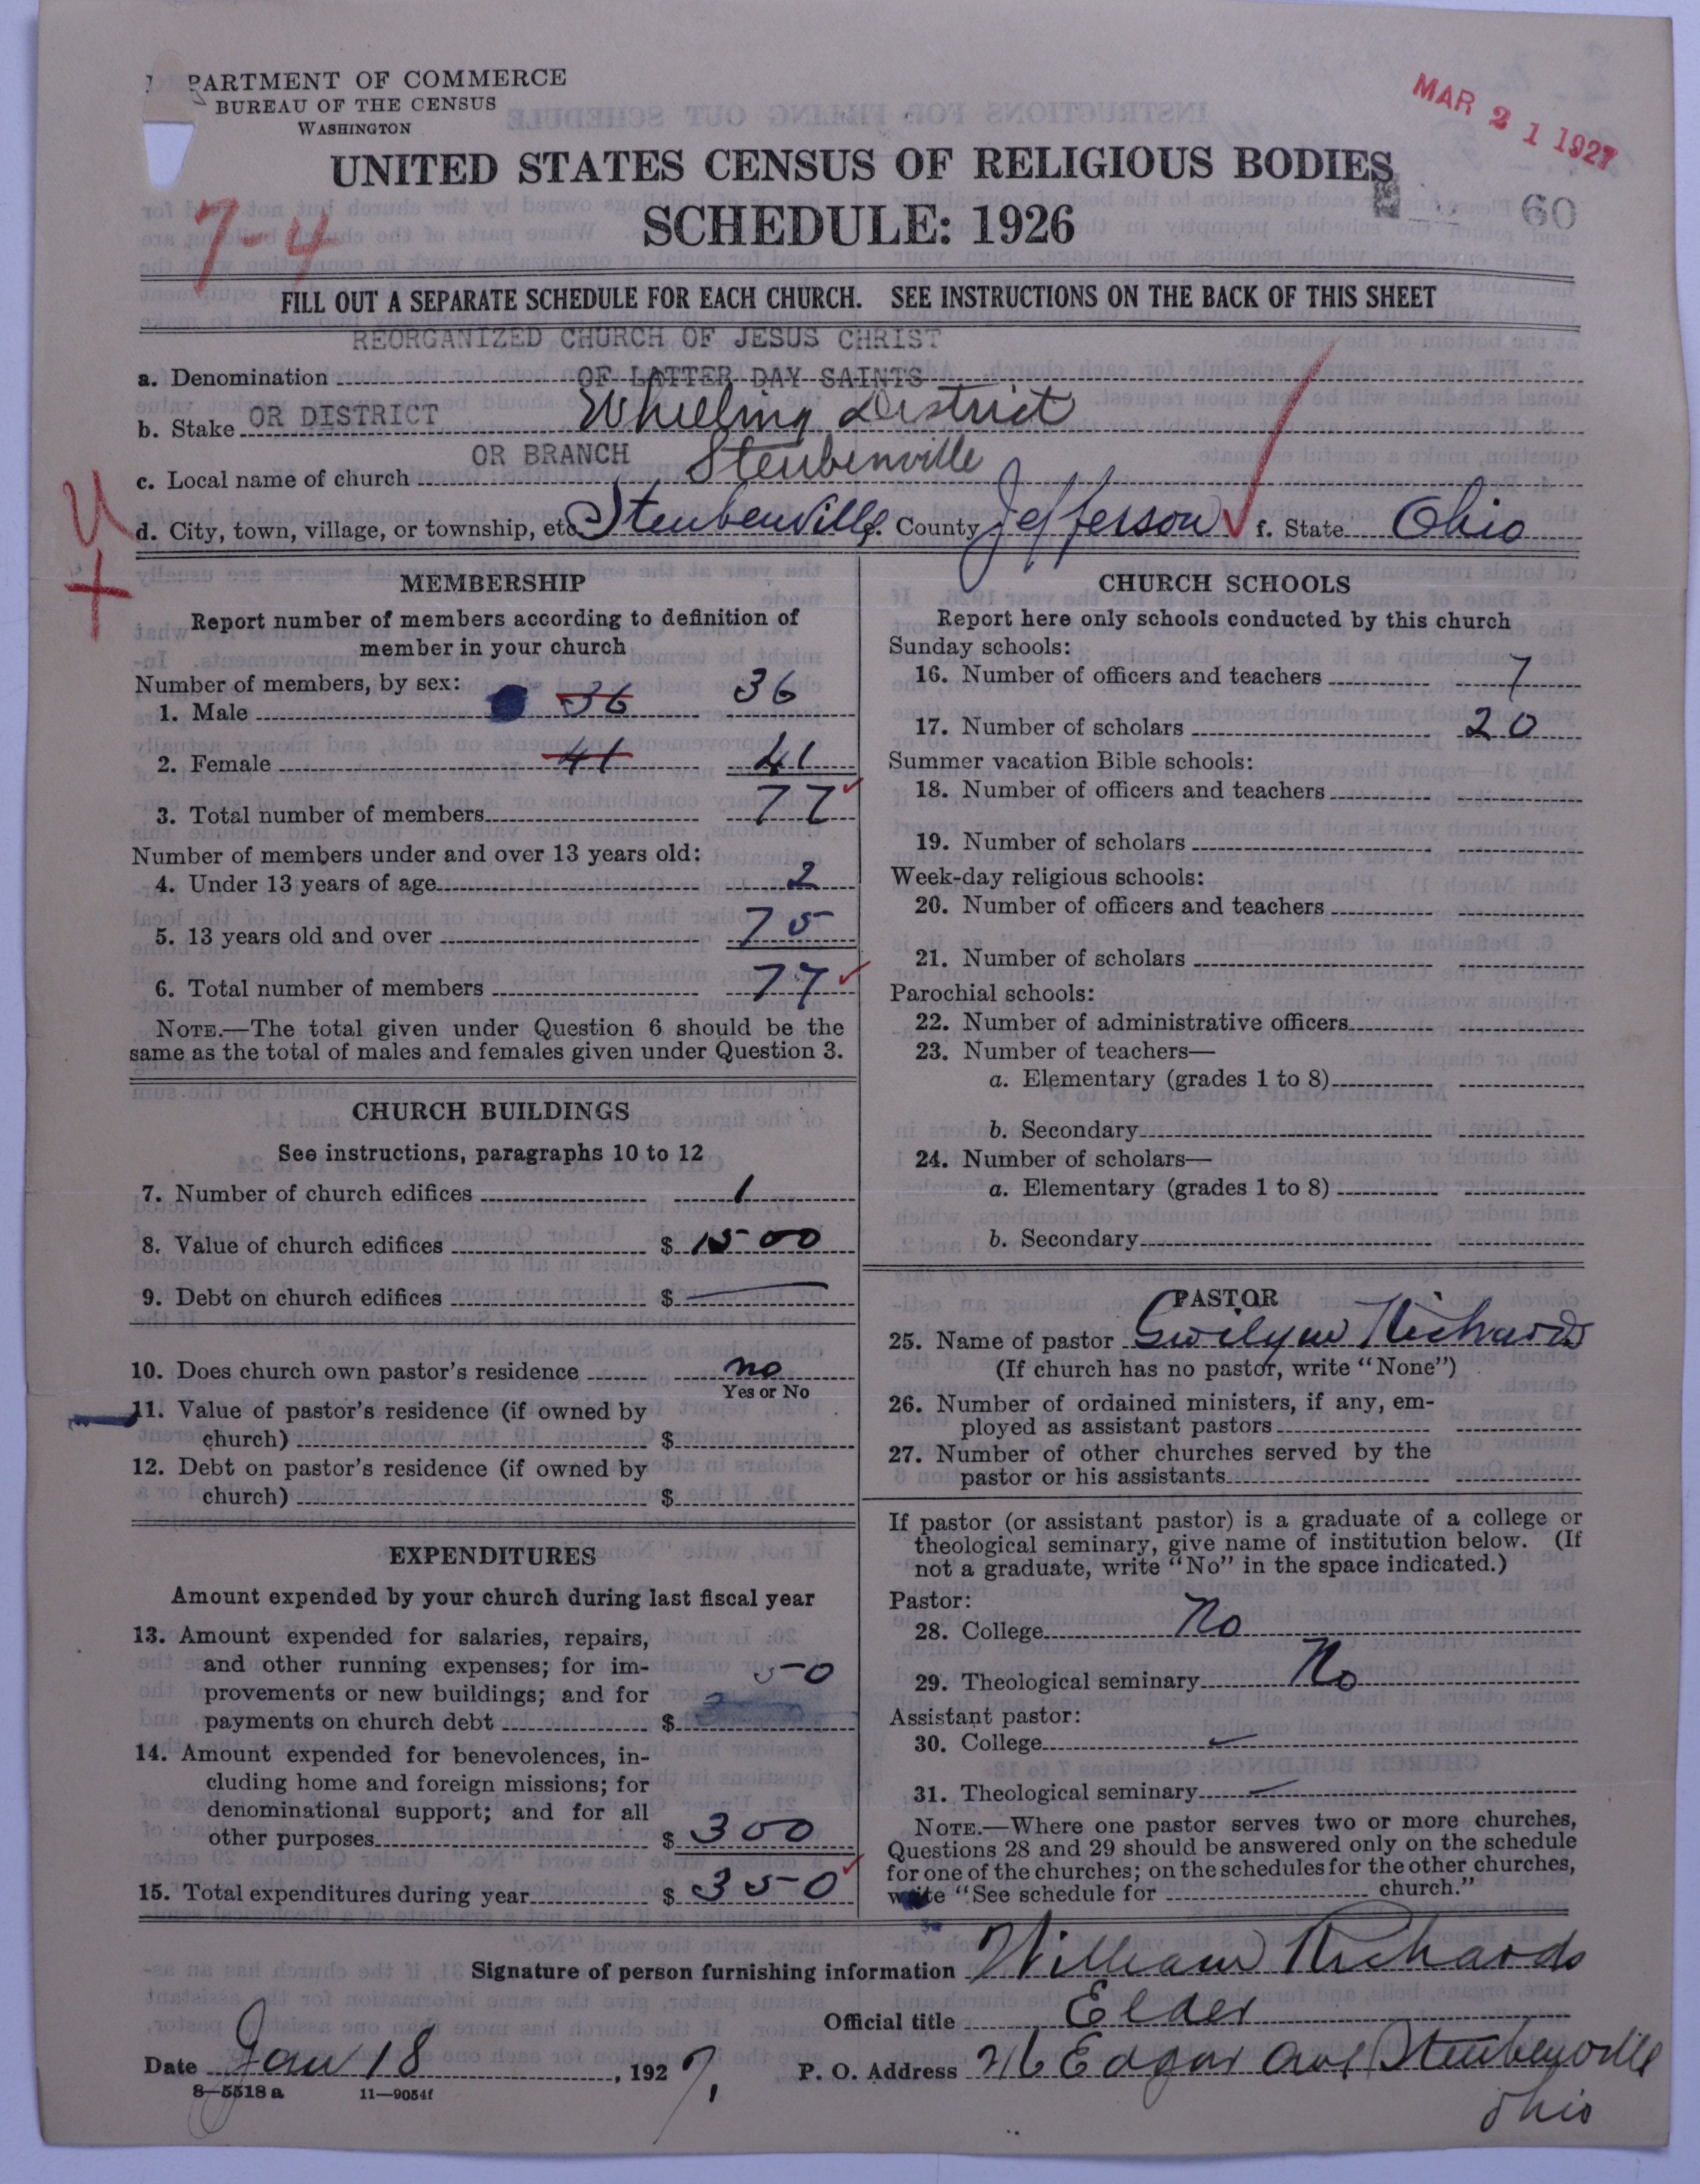 PARTMENT OF COMMERCE
BUREAU OF THE CENSUS
WASHINGTON
MAR 21 1927
UNITED STATES CENSUS OF RELIGIOUS BODIES
SCHEDULE: 1926
60
7-4
FILL OUT A SEPARATE SCHEDULE FOR EACH CHURCH. SEE INSTRUCTIONS ON THE BACK OF THIS SHEET
REORGANIZED CHURCH OF JESUS CHRIST
a. Denomination OF LATTER DAY SAINTS
b. Stake OR DISTRICT Wheeling District
c. Local name of church OR BRANCH Steubenville
d. City, town, village, or township, etc. Steubenville e. County Jefferson f. State Ohio
MEMBERSHIP
Report number of members according to definition of
member in your church
Number of members, by sex:
1. Male 36 36
2. Female 41 41
3. Total number of members 77
Number of members under and over 13 years old:
4. Under 13 years of age 2
5. 13 years old and over 75
6. Total number of members 77
NOTE.—The total given under Question 6 should be the
same as the total of males and females given under Question 3.
CHURCH BUILDINGS
See instructions, paragraphs 10 to 12
7. Number of church edifices 1
8. Value of church edifices $ 1500
9. Debt on church edifices $ —
10. Does church own pastor's residence no
Yes or No
11. Value of pastor's residence (if owned by
church) $
12. Debt on pastor's residence (if owned by
church) $
EXPENDITURES
Amount expended by your church during last fiscal year
13. Amount expended for salaries, repairs,
and other running expenses; for im-
provements or new buildings; and for
payments on church debt $ 50
14. Amount expended for benevolences, in-
cluding home and foreign missions; for
denominational support; and for all
other purposes $ 300
15. Total expenditures during year $ 350
CHURCH SCHOOLS
Report here only schools conducted by this church
Sunday schools:
16. Number of officers and teachers 7
17. Number of scholars 20
Summer vacation Bible schools:
18. Number of officers and teachers
19. Number of scholars
Week-day religious schools:
20. Number of officers and teachers
21. Number of scholars
Parochial schools:
22. Number of administrative officers
23. Number of teachers—
a. Elementary (grades 1 to 8)
b. Secondary
24. Number of scholars—
a. Elementary (grades 1 to 8)
b. Secondary
PASTOR
25. Name of pastor Gwilym Richards
(If church has no pastor, write "None")
26. Number of ordained ministers, if any, em-
ployed as assistant pastors
27. Number of other churches served by the
pastor or his assistants
If pastor (or assistant pastor) is a graduate of a college or
theological seminary, give name of institution below. (If
not a graduate, write "No" in the space indicated.)
Pastor:
28. College No
29. Theological seminary No
Assistant pastor:
30. College
31. Theological seminary
NOTE.—Where one pastor serves two or more churches,
Questions 28 and 29 should be answered only on the schedule
for one of the churches; on the schedules for the other churches,
write "See schedule for church."
Signature of person furnishing information William Richards
Official title Elder
Date Jan 18, 1927. P. O. Address 216 Edgar Ave Steubenville
Ohio
8—5518 a 11—9054f